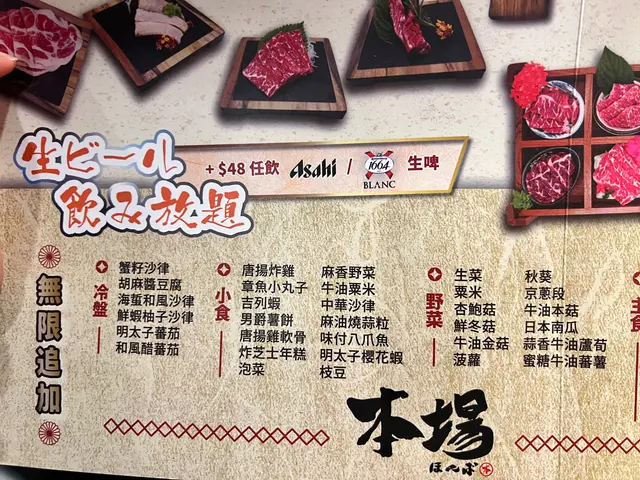 生ビール
飲み放題
+ $48 任飲 Asahi / 1664 BLANC 生啤
無限追加
冷盤
蟹籽沙律
胡麻醬豆腐
海蜇和風沙律
鮮蝦柚子沙律
明太子番茄
和風醋番茄
小食
唐揚炸雞
章魚小丸子
吉列蝦
男爵薯餅
唐揚雞軟骨
炸芝士年糕
泡菜
麻香野菜
牛油粟米
中華沙律
麻油燒蒜粒
味付八爪魚
明太子櫻花蝦
枝豆
野菜
生菜
粟米
杏鮑菇
鮮冬菇
牛油金菇
菠蘿
秋葵
京蔥段
牛油本菇
日本南瓜
蒜香牛油蘆筍
蜜糖牛油蕃薯
主食
本場
ほんば